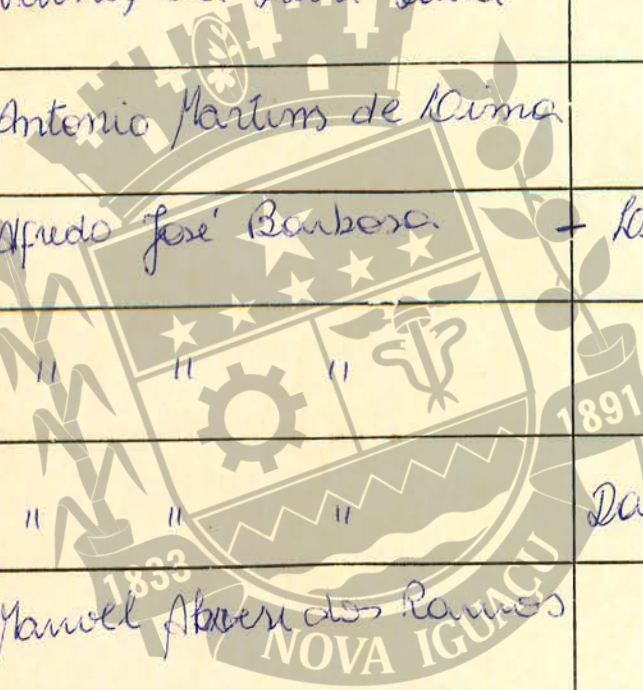 Antonio Martins de Lima
Alfredo José Barbosa -
" " "
" " " Da
Manoel dos Ramos
1891
1833
NOVA IGUAÇU